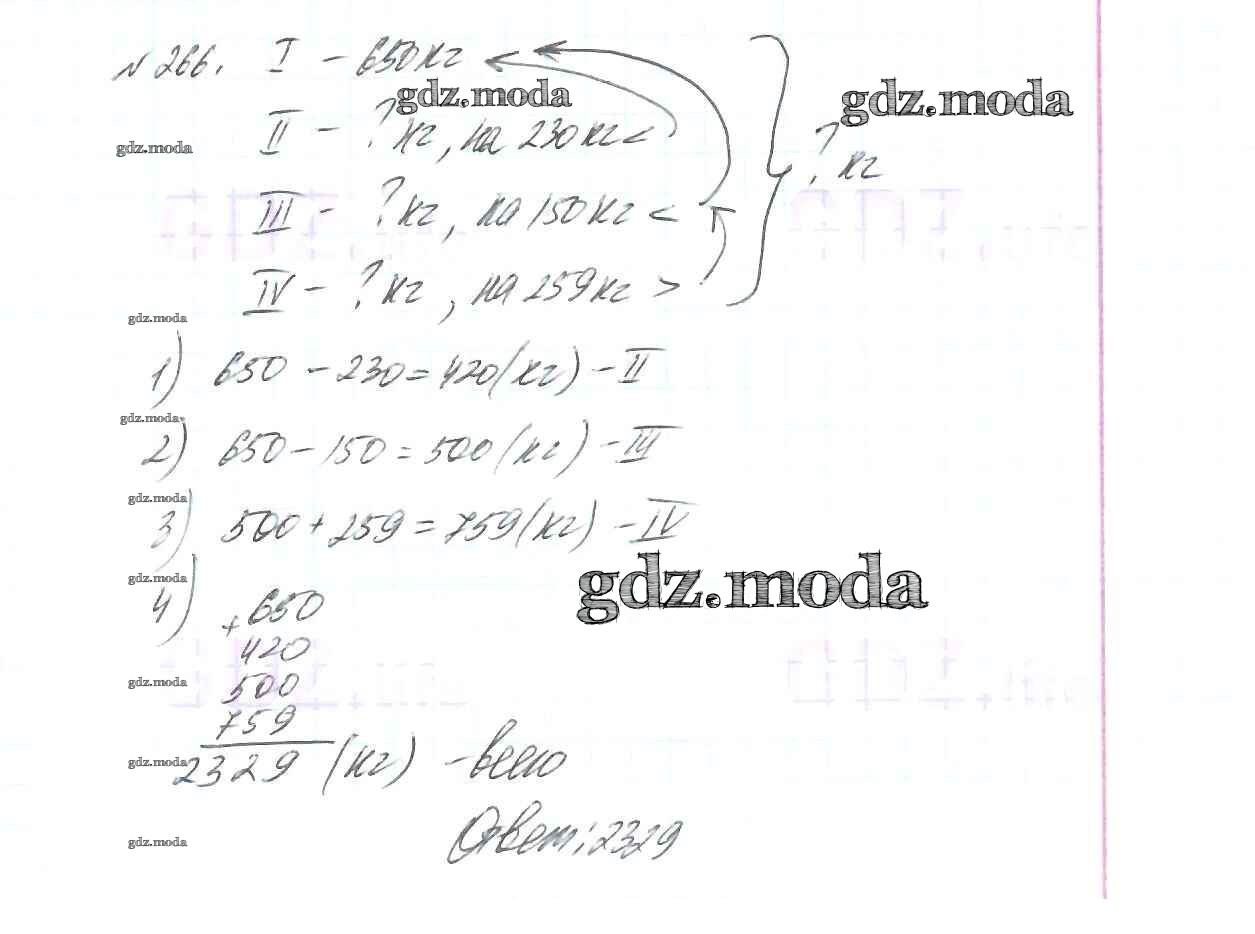 № 266. I – 650 кг
gdz.moda gdz.moda
II – ? кг, на 230 кг <
gdz.moda
? кг
III – ? кг, на 150 кг <
IV – ? кг, на 259 кг >
gdz.moda
1) 650 – 230 = 420 (кг) – II
gdz.moda
2) 650 – 150 = 500 (кг) – III
gdz.moda
3) 500 + 259 = 759 (кг) – IV
gdz.moda
gdz.moda
4) + 650
420
500
gdz.moda
759
2329 (кг) – всего
gdz.moda
Ответ: 2329
gdz.moda